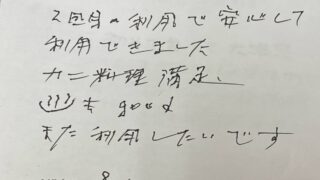 2回目の利用で安心して
利用できました
カニ料理満足、
♨も good
また利用したいです